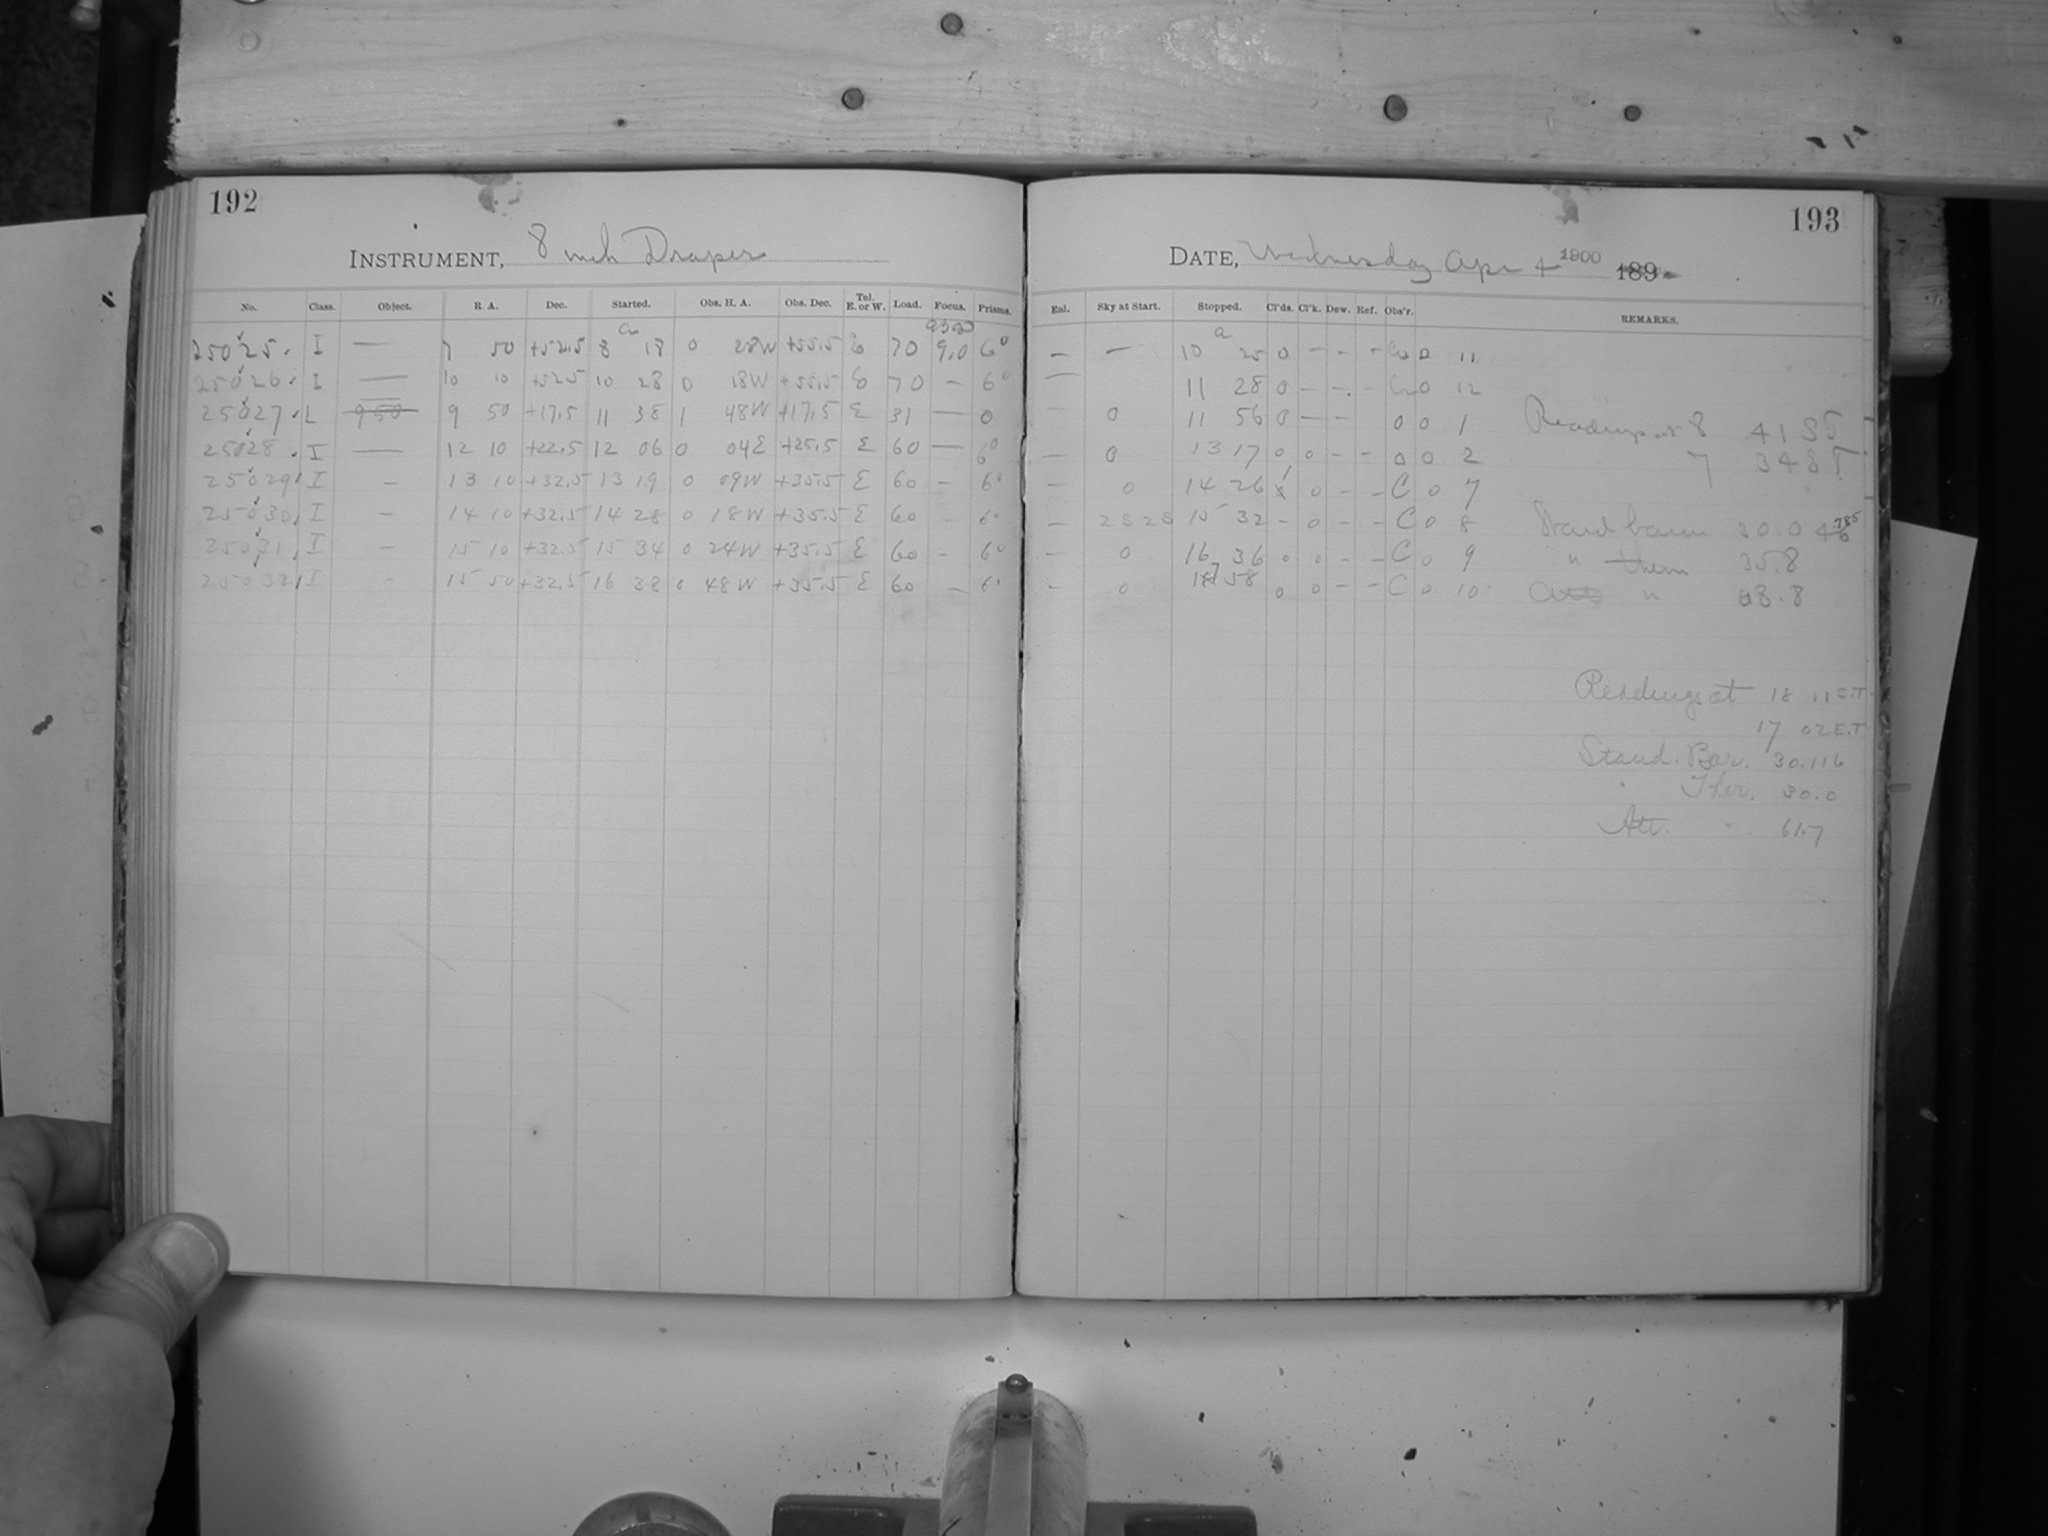 192
INSTRUMENT, 8 inch Draper
No. Class. Object. R. A. Dec. Started. Obs. H. A. Obs. Dec. Tel. E. or W. Load. Focus. Prisms.
25025. I — 7 50 +52.5 8 18 0 28W +55.5 E 70 9.0 6°
25026. I — 10 10 +52.5 10 28 0 18W +55.5 E 70 — 6°
25027. L 950 9 50 +17.5 11 38 1 48W +17.5 E 31 — 0
25028. I — 12 10 +22.5 12 06 0 04E +25.5 E 60 — 6°
25029. I — 13 10 +32.5 13 19 0 09W +35.5 E 60 - 6°
25030. I — 14 10 +32.5 14 28 0 18W +35.5 E 60 - 6°
25031. I — 15 10 +32.5 15 34 0 24W +35.5 E 60 - 6°
25032. I - 15 50 +32.5 16 38 0 48W +35.5 E 60 - 6°
193
DATE, Wednesday Apr 4 1900 189
Enl. Sky at Start. Stopped. Cl'ds. Cl'k. Dew. Ref. Obs'r. REMARKS.
— — 10 25 0 - - - 0 11
— 11 28 0 - - - 0 12
- 0 11 56 0 - - 0 0 1
- 0 13 17 0 0 - - 0 0 2
- 0 14 26 0 - - C 0 7
- 2828 15 32 - 0 - - C 0 8
- 0 16 36 0 0 - - C 0 9
- 0 58 0 0 - - C 0 10
Readings at 8 41 35
7 34 8
Stand barom 30.04
" therm 35.8
Att " 68.8
Readings at 18 11 C.T.
17 02 E.T
Stand. Bar. 30.116
Ther. 30.0
Att. " 61.7